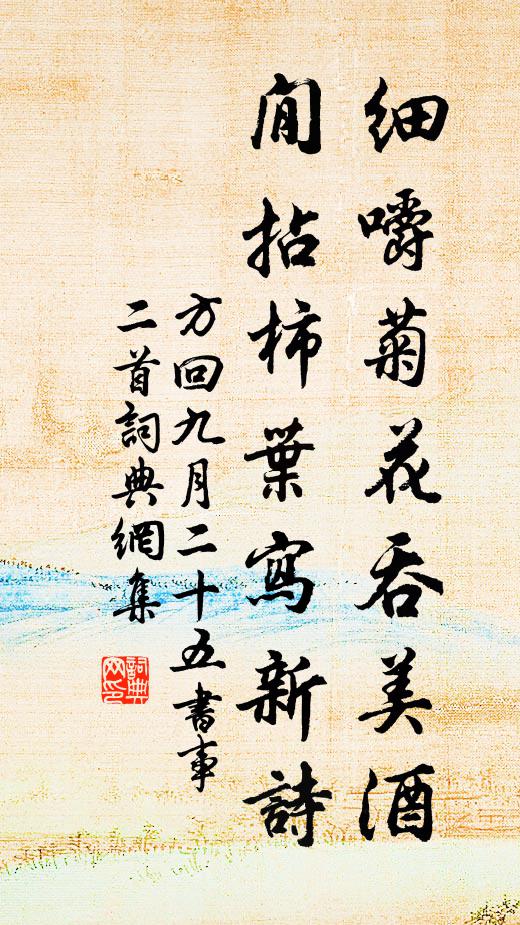 細嚼菊花吞美酒
閒拈柿葉寫新詩
方回九月二十五書事
二首詞典網集
詞典网印